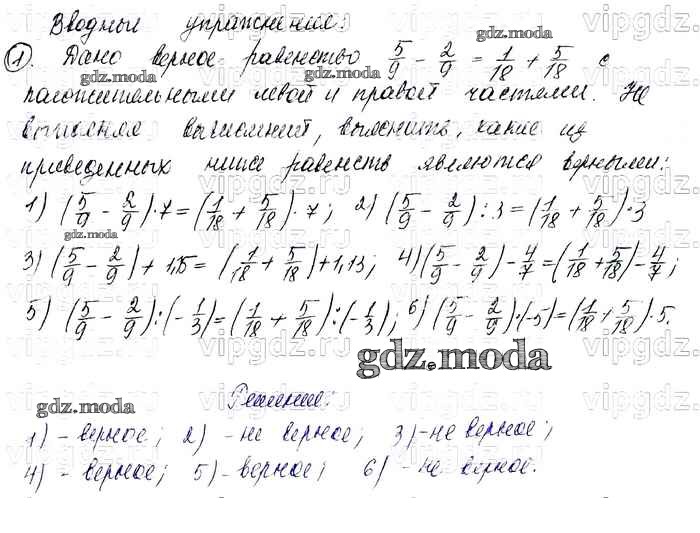 Вводные упражнения:
1. Дано верное равенство 5/9 − 2/9 = 1/18 + 5/18 с
положительными левой и правой частями. Не
выполняя вычислений, выяснить, какие из
приведенных ниже равенств являются верными:
1) (5/9 − 2/9)·7 = (1/18 + 5/18)·7; 2) (5/9 − 2/9):3 = (1/18 + 5/18)·3
3) (5/9 − 2/9) + 1,15 = (1/18 + 5/18) + 1,13; 4) (5/9 − 2/9) − 4/7 = (1/18 + 5/18) − 4/7;
5) (5/9 − 2/9):(−1/3) = (1/18 + 5/18):(−1/3); 6) (5/9 − 2/9)·(−5) = (1/18 + 5/18)·5.
gdz.moda
Решение:
1) – верное; 2) – не верное; 3) – не верное;
4) – верное; 5) – верное; 6) – не верное.